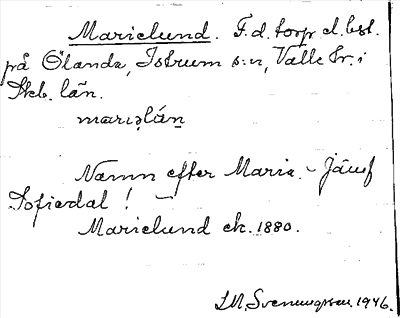 Marielund. F.d. torp el. lsl.
på Öland, Istrum s:n, Valle hr. i
Skb. län.
marıəlún
Namn efter Maria. – Jämf
Sofiedal! –
Marielund ek. 1880.
S.M. Svenungsson. 1946.